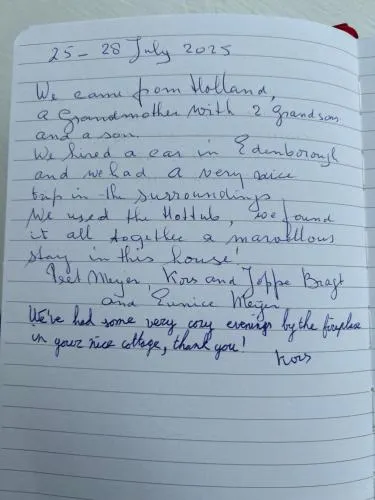 25 - 28 July 2025
We came from Holland,
a Grandmother with 2 grandson
and a son.
We hired a car in Edenborough
and we had a very nice
trip in the surroundings
We used the Hottub, we found
it all together a marvellous
stay in this house!
Piet Meyer, Kors and Joppe Bragt
and Eunice Meijer
We've had some very cozy evenings by the fireplace
in your nice cottage, thank you!
Kors